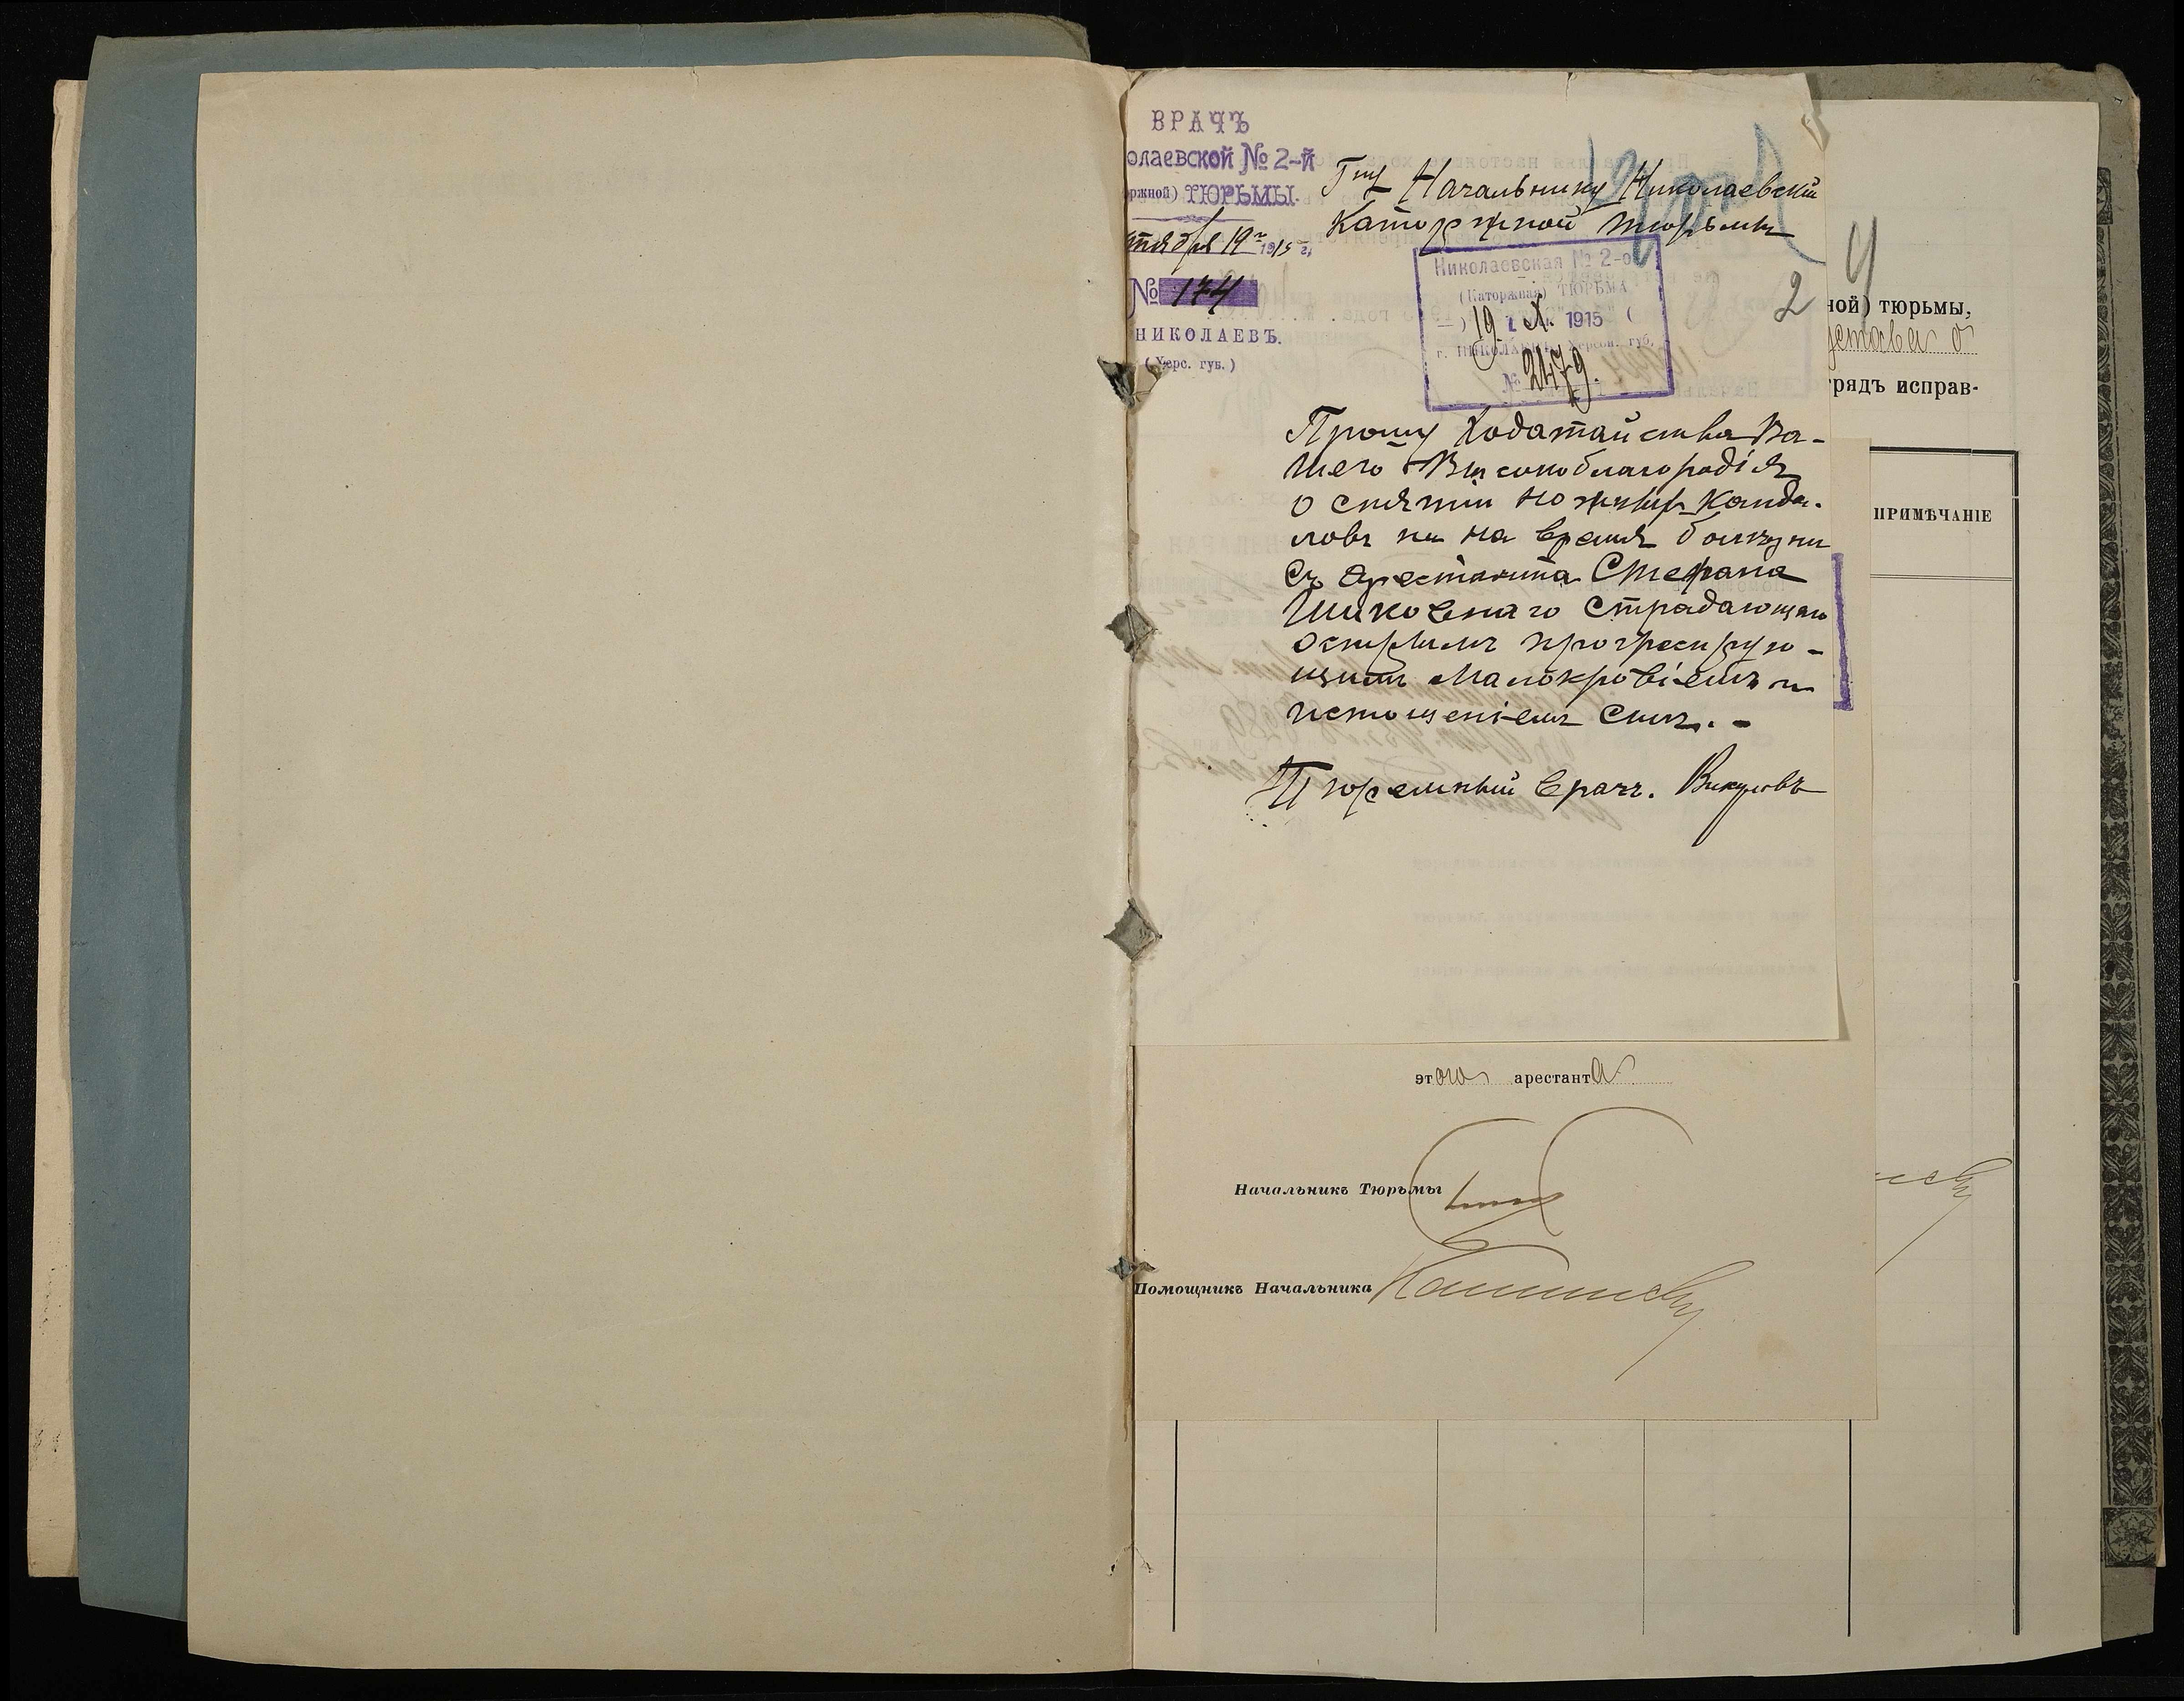 ВРАЧЪ
олаевской № 2-й
оржной) ТЮРЬМЫ.
тября 19 1915 г.
№ 174
НИКОЛАЕВЪ.
(Херс. губ.)
Гну Начальнику Николаевской
Каторжной тюрьмы
Николаевская № 2-я
(Каторжная) ТЮРЬМА
19 X 1915
г. НИКОЛАЕВЪ, Херсон. губ.
№ 2479.
2
4
ной) тюрьмы,
устава о
трядъ исправ-
ПРИМѢЧАНІЕ
Прошу Ходатайства Ва-
шего Высокоблагородія
о снятіи ножныхъ Канда-
ловъ на время болѣзни
съ арестанта Стефана
Шиковскаго страдающаго
острымъ прогрессирую-
щимъ малокровіемъ и
истощеніемъ силъ. -
Тюремный врачъ. Викуловъ
этого арестанта
Начальникъ Тюрьмы
Помощникъ Начальника